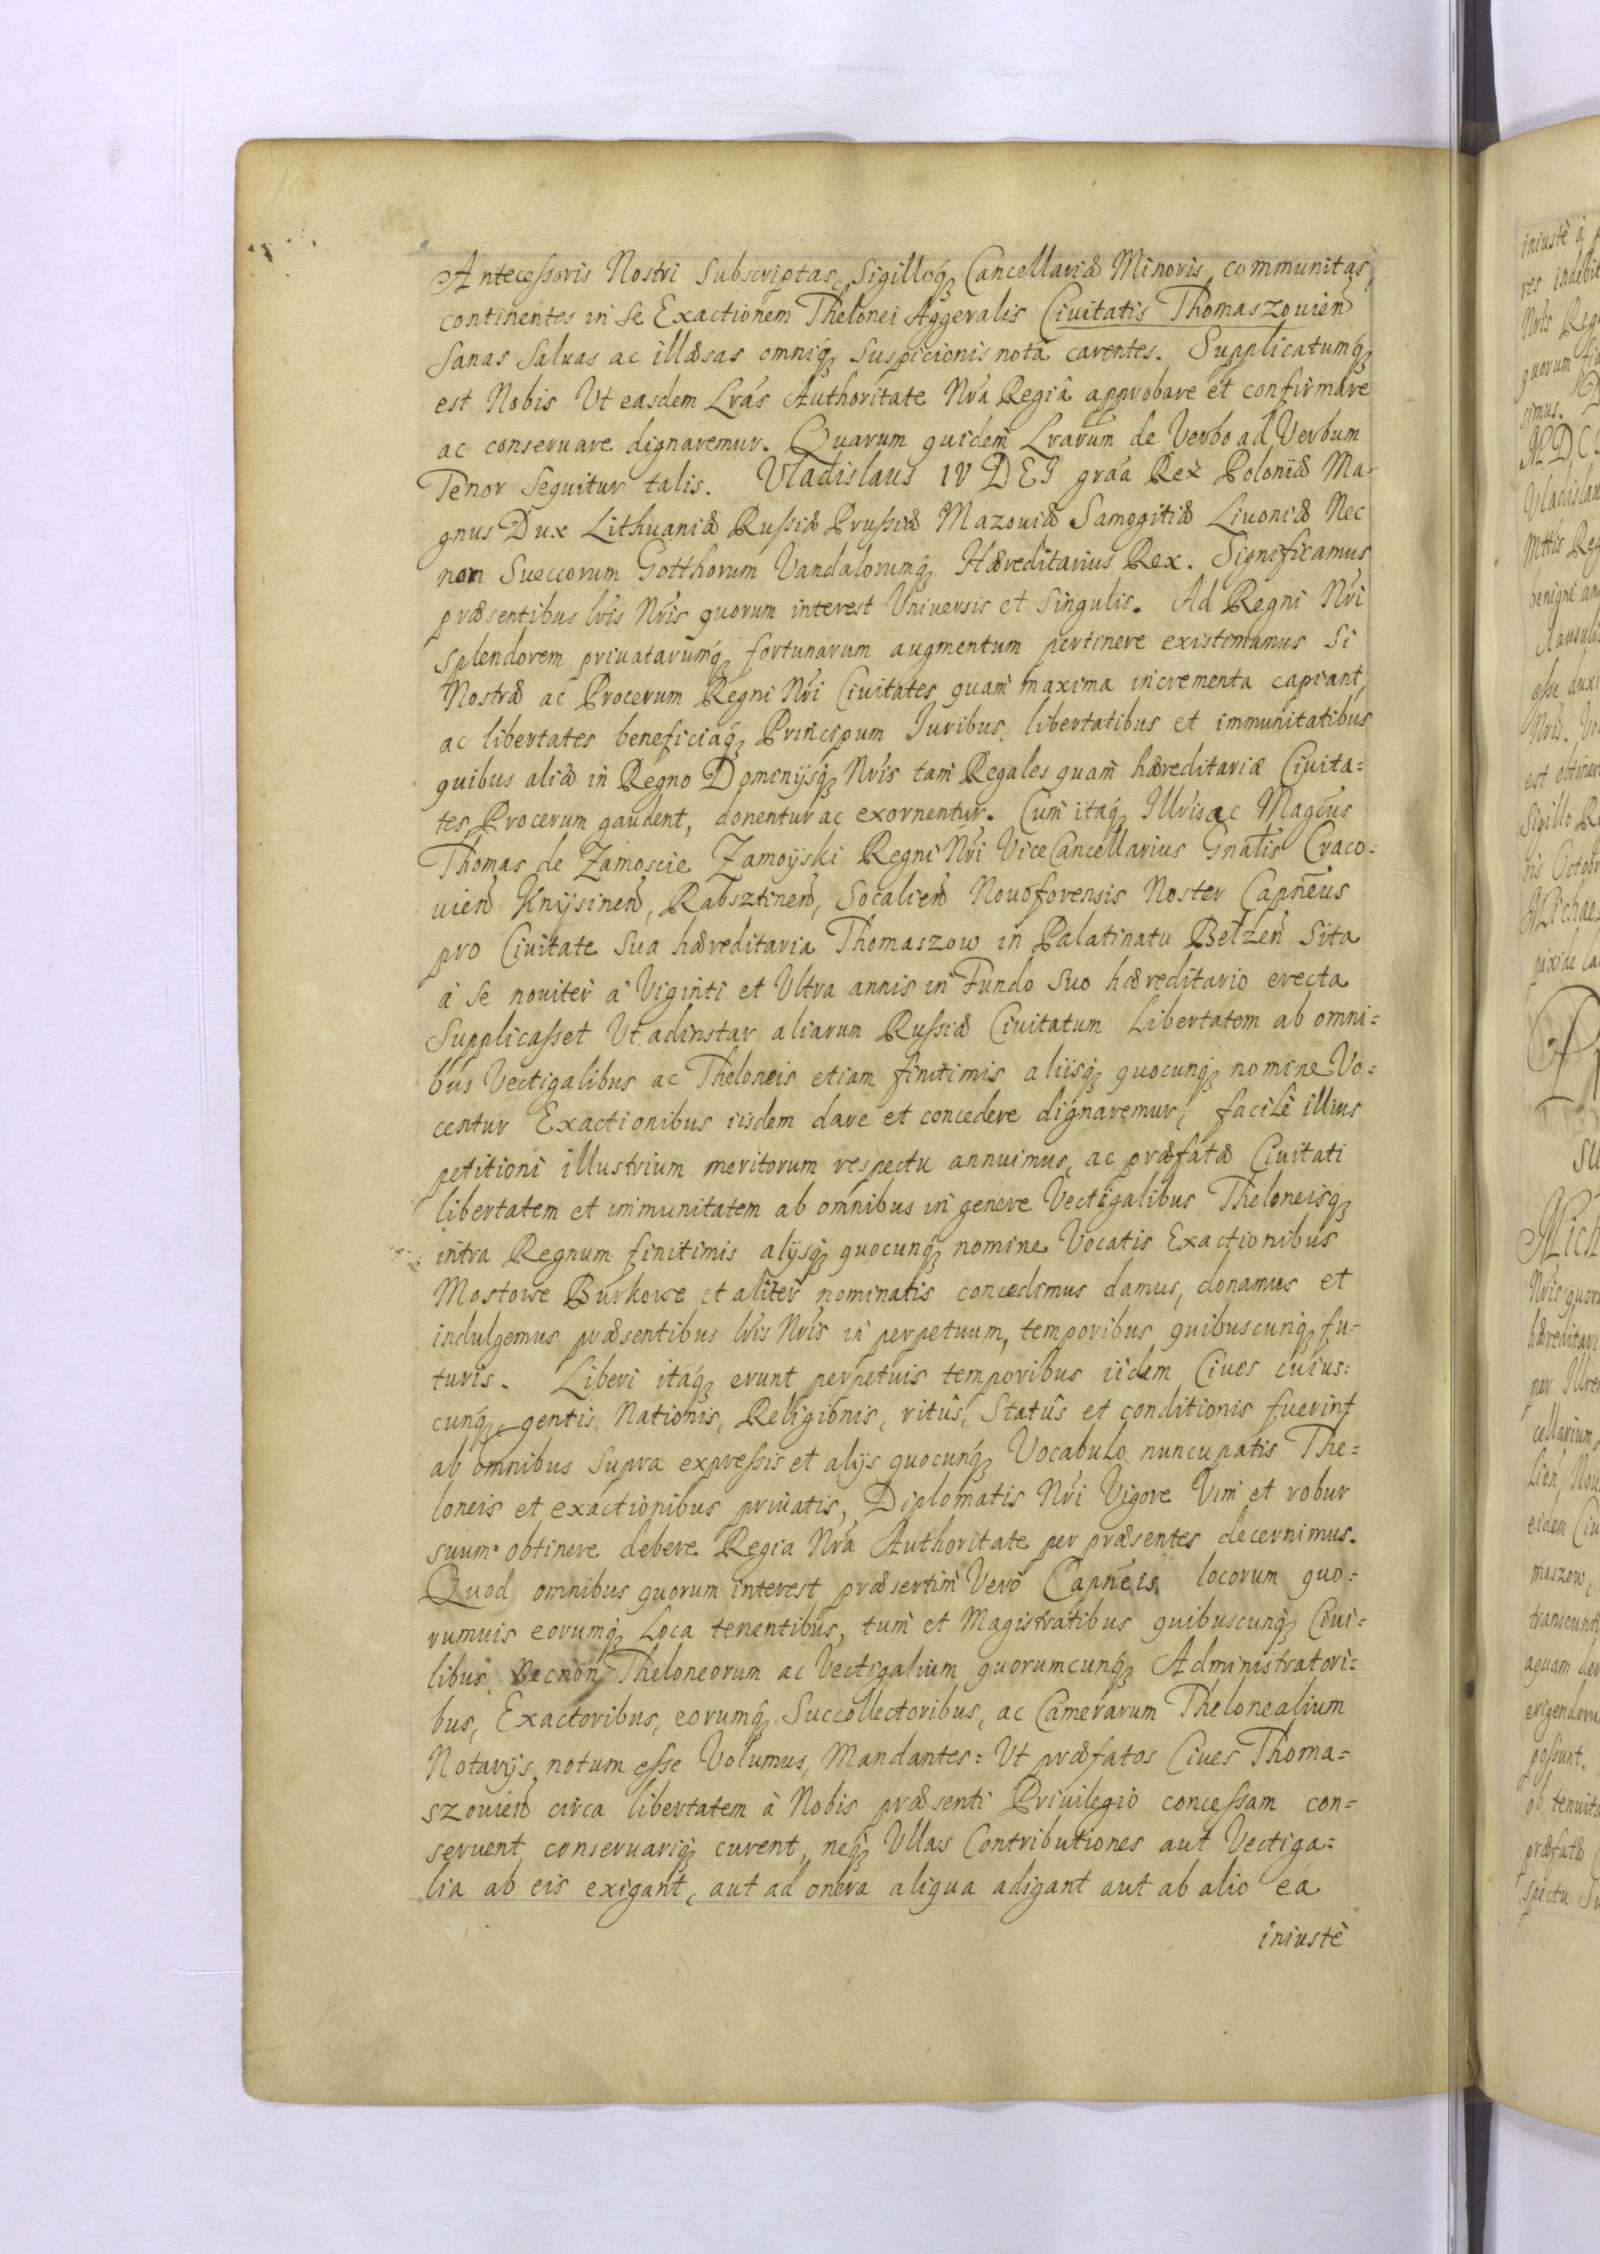 Antecessoris Nostri Subscriptas, Sigilloq́ꝫ Cancellariæ Minoris, communitas,
continentes in se Exactionem Thelonei Aggeralis Ciuitatis Thomaszouień
Sanas Saluas ac illæsas omniq́ꝫ Suspicionis notâ carentes. Supplicatumq́ꝫ
est Nobis Vt easdem Lrás Authoritate Nrá Regiâ approbare et confirmare
ac conseruare dignaremur. Quarum quidem Lrarum de Verbo ad Verbum
Tenor Sequitur talis. Vladislaus IV DEI graá Rex Poloniæ Ma-
gnus Dux Lithuaniæ Russiæ Prussiæ Mazouiæ Samogitiæ Liuoniæ Nec
non Sueccorum Gotthorum Vandalorumq́ꝫ Hæreditarius Rex. Significamus
præsentibus lrís Nrís quorum interest Vniuersis et Singulis. Ad Regni Nrí
Splendorem priuatarumq́ꝫ fortunarum augmentum pertinere existimamus Si
Nostræ ac Procerum Regni Nrí Ciuitates quam maxima incrementa capiant,
ac libertates beneficiaq́ꝫ Principum Iuribus, libertatibus et immunitatibus
quibus aliæ in Regno Dominijsq́ꝫ Nrís tam Regales quam hæreditariæ Ciuita=
tes Procerum gaudent, donentur ac exornentur. Cum itaq́ꝫ Illrís ac Magćus
Thomas de Zamoscie Zamoÿski Regni Nrí ViceCancellarius Gnalís Craco=
uień Knÿsineń, Rabsztineń, Socalień Nouoforensis Noster Capńeus
pro Ciuitate Sua hæreditaria Thomaszow in Palatinatu Bełzeń Sita
à Se nouiter à Viginti et Vltra annis in Fundo Suo hæreditario erecta
Supplicasset Vt adinstar aliarum Russiæ Ciuitatum Libertatem ab omni=
bus Vectigalibus ac Theloneis etiam finitimis aliisq́ꝫ quocunq́ꝫ nomine Vo=
centur Exactionibus iisdem dare et concedere dignaremur, facilè illius
petitioni illustrium meritorum respectu annuimus, ac præfatæ Ciuitati
libertatem et immunitatem ab omnibus in genere Vectigalibus Theloneisq́ꝫ
intra Regnum finitimis alijsq́ꝫ quocunq́ꝫ nomine Vocatis Exactionibus
Mostowe Burkowe et aliter nominatis concedimus damus, donamus et
indulgemus præsentibus lrís Nrís in perpetuum, temporibus quibuscunq́ꝫ fu-
turis. Liberi itaq́ꝫ erunt perpetuis temporibus iidem Ciues cuius=
cunq́ꝫ gentis, Nationis, Religionis, ritûs, Statûs et conditionis fuerint
ab omnibus Supra expressis et alijs quocunq́ꝫ Vocabulo nuncupatis The=
loneis et exactionibus priuatis, Diplomatis Nrí Vigore Vim et robur
suum obtinere debere Regia Nrá Authoritate per præsentes decernimus.
Quod omnibus quorum interest præsertim Verò Capńeis locorum quo=
rumuis eorumq́ꝫ Loca tenentibus, tum et Magistratibus quibuscunq́ꝫ Ciui=
libus, Necnon Theloneorum ac Vectigalium quorumcunq́ꝫ Administratori=
bus, Exactoribus, eorumq́ꝫ Succollectoribus, ac Camerarum Thelonealium
Notarijs, notum esse Volumus, Mandantes: Vt præfatos Ciues Thoma=
szouień circa libertatem à Nobis præsenti Priuilegio concessam con=
seruent conseruariq́ꝫ curent, neq́ꝫ Vllas Contributiones aut Vectiga=
lia ab eis exigant, aut ad onera aliqua adigant aut ab alio ea
iniustè